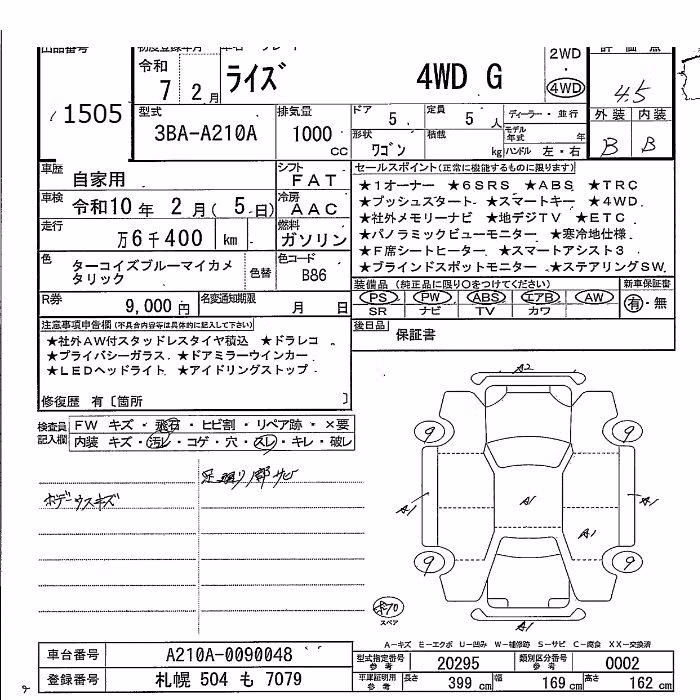 出品番号
1505
初度登録年月
令和
7 2月
ライズ
4WD G
2WD
・
4WD
評価点
4.5
型式
3BA-A210A
排気量
1000 CC
ドア 5
定員 5 人
ディーラー・並行
形状 ワゴン
積載 kg
モデル年式 年
ハンドル 左・右
外装 内装
B B
車歴 自家用
シフト FAT
車検 令和10年 2月( 5日)
冷房 AAC
走行 万6千400 km
燃料 ガソリン
色 ターコイズブルーマイカメタリック
色替
色コード B86
R券 9,000円
名変通知期限 月 日
セールスポイント(正常に機能するものに限ります)
★1オーナー ★6SRS ★ABS ★TRC
★プッシュスタート ★スマートキー ★4WD
★社外メモリーナビ ★地デジTV ★ETC
★パノラミックビューモニター ★寒冷地仕様
★F席シートヒーター ★スマートアシスト3
★ブラインドスポットモニター ★ステアリングSW
装備品(純正品に限り○をつけてください)
新車保証書
PS PW ABS エアB AW
SR ナビ TV カワ
有・無
後日品 保証書
注意事項申告欄(不具合内容等は具体的に記入して下さい)
★社外AW付スタッドレスタイヤ積込 ★ドラレコ
★プライバシーガラス ★ドアミラーウインカー
★LEDヘッドライト ★アイドリングストップ
修復歴 有〔箇所 〕
検査員記入欄
FW キズ・飛石・ヒビ割・リペア跡・×要
内装 キズ・汚レ・コゲ・穴・スレ・キレ・破レ
足廻り部サビ
ボデーウスキズ
A2
9 9
A1 A1 A1
A1
9 9
A1
スペア
A-キズ E-エクボ U-凹み W-補修跡 S-サビ C-腐食 XX-交換済
車台番号 A210A-0090048
登録番号 札幌 504 も 7079
型式指定番号 参考 20295
類別区分番号 参考 0002
車庫証明用 参考 長さ 399 cm 幅 169 cm 高さ 162 cm